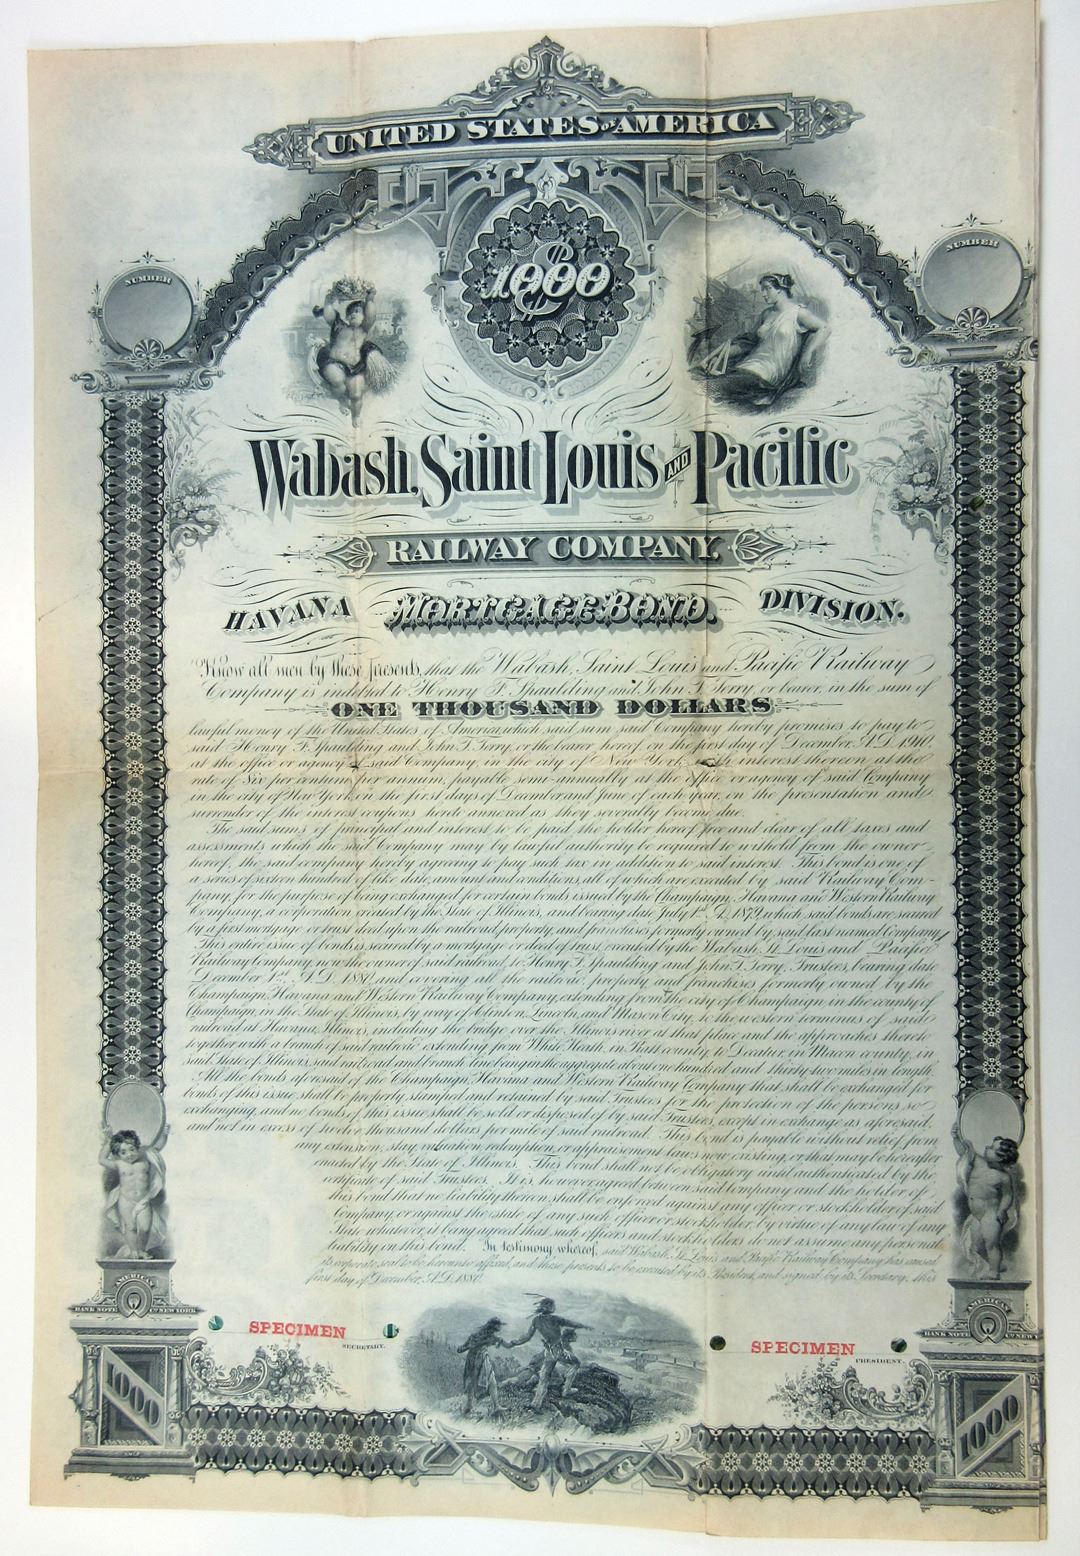 UNITED STATES OF AMERICA
NUMBER
NUMBER
$1000
Wabash, Saint Louis AND Pacific
RAILWAY COMPANY.
HAVANA MORTGAGE BOND. DIVISION.
Know all men by these presents, that the Wabash, Saint Louis and Pacific Railway
Company is indebted to Henry F. Spaulding and John T. Terry, or bearer, in the sum of
ONE THOUSAND DOLLARS
lawful money of the United States of America, which said sum said Company hereby promises to pay to
said Henry F. Spaulding and John T. Terry, or the bearer hereof, on the first day of December, A.D. 1910,
at the office or agency of said Company, in the city of New York, the interest thereon at the
rate of Six per centum per annum, payable semi-annually at the office or agency of said Company
in the city of New York, on the first days of December and June of each year, on the presentation and
surrender of the interest coupons hereto annexed as they severally become due.
The said sums of principal and interest to be paid the holder hereof free and clear of all taxes and
assessments which the said Company may by lawful authority be required to withold from the owner
hereof, the said company hereby agreeing to pay such tax in addition to said interest. This bond is one of
a series of sixteen hundred of like date, amount and conditions, all of which are executed by said Railway Com-
pany, for the purpose of being exchanged for certain bonds issued by the Champaign, Havana and Western Railway
Company, a corporation created by the State of Illinois, and bearing date July 1st A.D. 1879, which said bonds are secured
by a first mortgage or trust deed upon the railroad, property, and franchises formerly owned by said last named Company.
This entire issue of bonds is secured by a mortgage or deed of trust, executed by the Wabash, St. Louis and Pacific
Railway Company, now the owner of said railroad, to Henry F. Spaulding and John T. Terry, Trustees, bearing date
December 1st A.D. 1880, and covering all the railroad, property and franchises formerly owned by the
Champaign, Havana and Western Railway Company, extending from the city of Champaign, in the county of
Champaign, in the State of Illinois, by way of Clinton, Lincoln, and Mason City, to the western terminus of said
railroad at Havana, Illinois, including the bridge over the Illinois river at that place and the approaches thereto
together with a branch of said railroad extending from White Heath, in Piatt county, to Decatur, in Macon county, in
said State of Illinois, said railroad and branch line being in the aggregate about one hundred and thirty-two miles in length.
All the bonds aforesaid of the Champaign, Havana and Western Railway Company that shall be exchanged for
bonds of this issue shall be properly stamped and retained by said Trustees for the protection of the persons so
exchanging, and no bonds of this issue shall be sold or disposed of by said Trustees, except in exchange as aforesaid,
and not in excess of twelve thousand dollars per mile of said railroad. This bond is payable without relief from
any extension, stay, valuation, redemption, or appraisement laws now existing, or that may be hereafter
enacted by the State of Illinois. This bond shall not be obligatory until authenticated by the
certificate of said Trustees. It is however agreed between said Company and the holder of
this bond that no liability thereon shall be enforced against any officer or stockholder of said
Company, or against the estate of any such officer or stockholder, by virtue of any law of any
State whatever, it being agreed that such officers and stockholders do not assume any personal
liability on this bond. In testimony whereof, said Wabash, St. Louis and Pacific Railway Company has caused
its corporate seal to be hereunto affixed, and these presents to be executed by its President, and signed by its Secretary, this
first day of December, A.D. 1880.
AMERICAN
BANK NOTE Co NEW YORK
AMERICAN
BANK NOTE Co NEW
SPECIMEN
SECRETARY.
SPECIMEN
PRESIDENT.
1000
1000